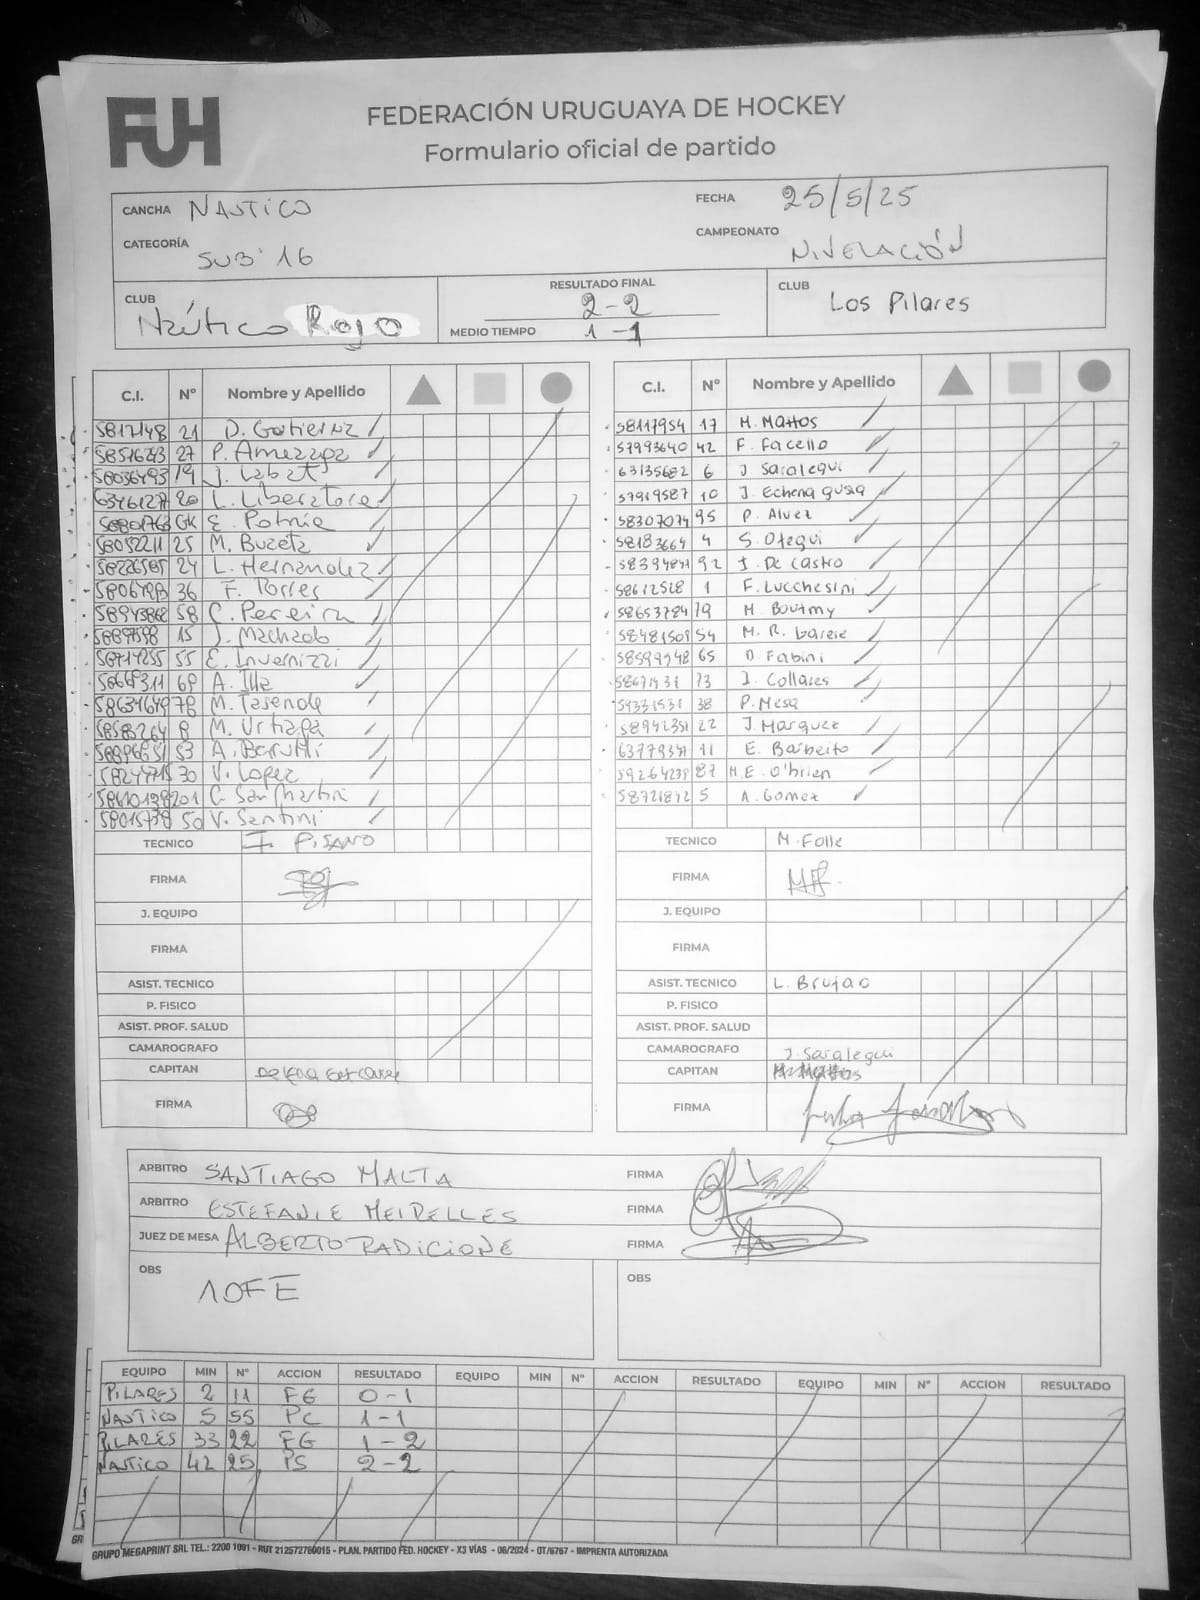 FUH
FEDERACIÓN URUGUAYA DE HOCKEY
Formulario oficial de partido
CANCHA NAUTICO FECHA 25/5/25
CATEGORÍA SUB 16 CAMPEONATO NIVELACIÓN
CLUB Náutico Rojo
RESULTADO FINAL 2-2
MEDIO TIEMPO 1-1
CLUB Los Pilares
C.I. Nº Nombre y Apellido
21 D. Gutierrez
27 P. Amezaga
19 J. Labat
20 L. Liberatore
GK E. Patrie
25 M. Buzeta
24 L. Hernandez
36 F. Torres
58 C. Pereira
15 J. Machado
55 E. Invernizzi
69 A. Illa
78 M. Tasende
8 M. Urtiaga
53 A. Barutti
30 V. Lopez
201 C. San Martin
50 V. Santini
TECNICO I. PISANO
FIRMA
J. EQUIPO
FIRMA
ASIST. TECNICO
P. FISICO
ASIST. PROF. SALUD
CAMAROGRAFO
CAPITAN
FIRMA
C.I. Nº Nombre y Apellido
58117954 17 M. Mattos
57993640 42 F. Facello
63135682 6 J Saralegui
57919587 10 J. Echenagusia
58307074 95 P. Alvez
58183664 4 S. Otegui
92 J. De Castro
58612528 1 F. Lucchesini
58653784 19 M Boutmy
58481501 54 M. R.
58599248 65 D. Fabini
73 J. Collares
59331531 38 P. Mesa
58942351 22 J. Marquez
11 E. Barbeito
87 M.E. O'brien
58721842 5 A. Gomez
TECNICO M. Folle
FIRMA
J. EQUIPO
FIRMA
ASIST. TECNICO L. Brujao
P. FISICO
ASIST. PROF. SALUD
CAMAROGRAFO
CAPITAN J. Saralegui
FIRMA
ARBITRO SANTIAGO MALTA FIRMA
ARBITRO ESTEFANIE MEIRELLES FIRMA
JUEZ DE MESA ALBERTO RADICIONE FIRMA
OBS 1OFE
OBS
EQUIPO MIN Nº ACCION RESULTADO EQUIPO MIN Nº ACCION RESULTADO EQUIPO MIN Nº ACCION RESULTADO
PILARES 2 11 FG 0-1
NAUTICO 5 55 PC 1-1
PILARES 33 22 FG 1-2
NAUTICO 42 25 PS 2-2
GRUPO MEGAPRINT SRL TEL.: 2200 1091 - RUT 212572760015 - PLAN. PARTIDO FED. HOCKEY - X3 VÍAS - 06/2024 - OT/6767 - IMPRENTA AUTORIZADA